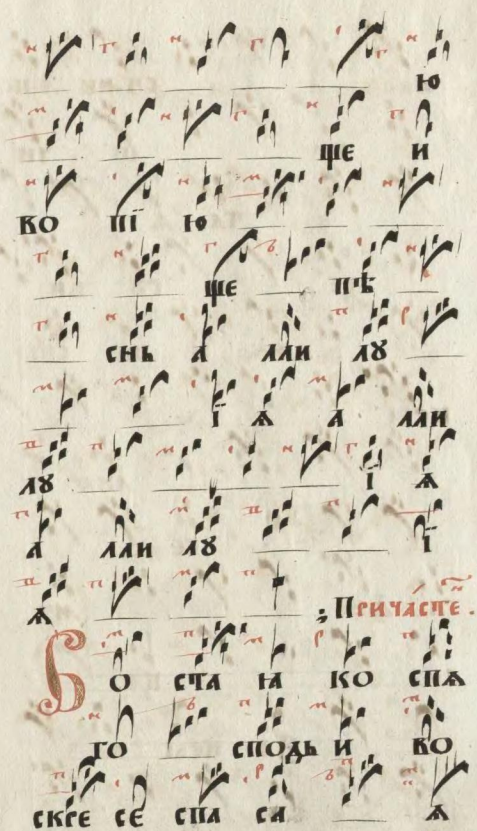 Ю
ЩЕ И
ВО ПЇ Ю
ЩЕ ПѢ
СНЬ А ЛЛИ ЛꙊ
Ї Ѧ А ЛЛИ
ЛꙊ Ї Ѧ
А ЛЛИ ЛꙊ Ї
Ѧ ; ПРИЧА́СТЕ.
В О СТА Ꙗ КО СПѦ
ГО СПОДЬ И ВО
СКРЕ СЕ СПА СА Ѧ